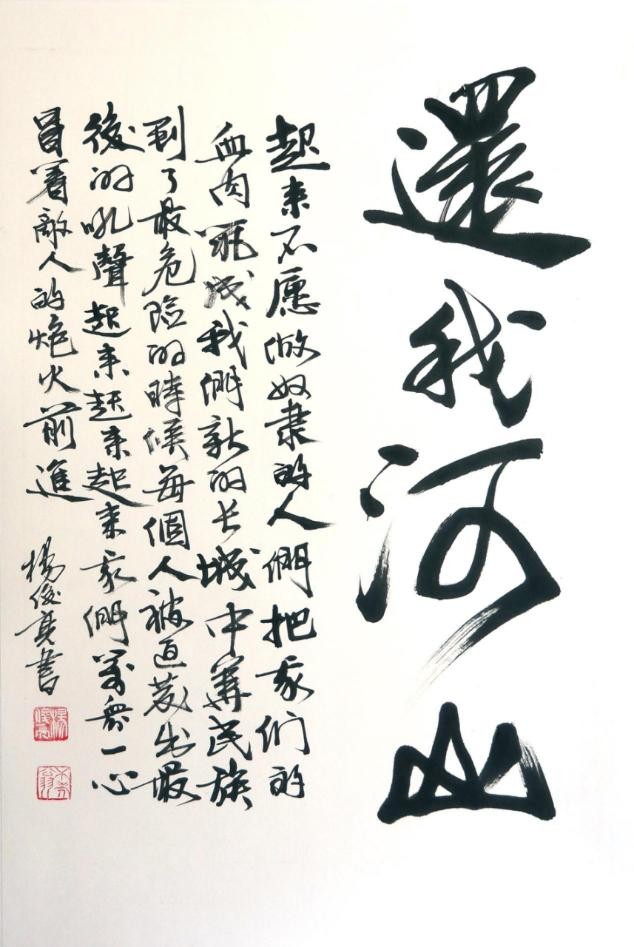 還我河山
起来不愿做奴隶的人們把我们的
血肉筑成我們新的长城中華民族
到了最危险的時候每個人被迫發出最
後的吼聲起来起来起来我們萬衆一心
冒着敵人的炮火前進
楊俊亮書